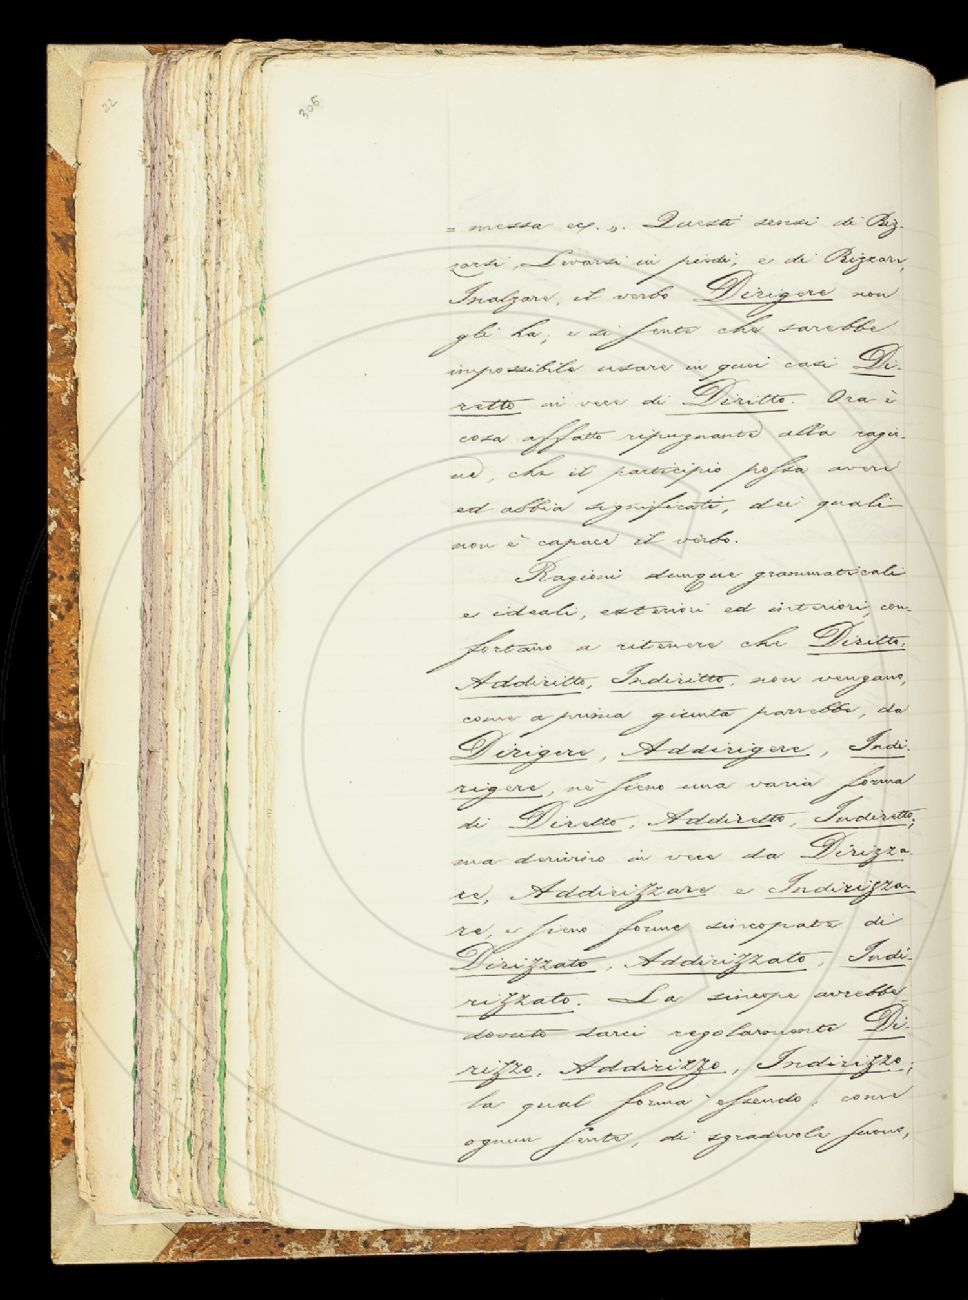 22
306
= messa ec. „. Questi sensi di Riz-
zarsi, Levarsi in piedi; e di Rizzare,
Inalzare, il verbo Dirigere non
gli ha; e si sente che sarebbe
impossibile usare in quei casi Di-
retto in vece di Diritto. Ora è
cosa affatto ripugnante alla ragio-
ne, che il participio possa avere
ed abbia significati, dei quali
non è capace il verbo.
Ragioni dunque grammaticali
e ideali, esteriori ed interiori, con-
fortano a ritenere che Diritto,
Addiritto, Indiritto, non vengano,
come a prima giunta parrebbe, da
Dirigere, Addirigere, Indi-
rigere, nè sieno una varia forma
di Diretto, Addiretto, Indiretto;
ma derivino in vece da Dirizza-
re, Addirizzare e Indirizza-
re, e sieno forme sincopate di
Dirizzato, Addirizzato, Indi-
rizzato. La sincope avrebbe
dovuto darci regolarmente Di-
rizzo, Addirizzo, Indirizzo;
la qual forma essendo, come
ognun sente, di sgradevole suono,